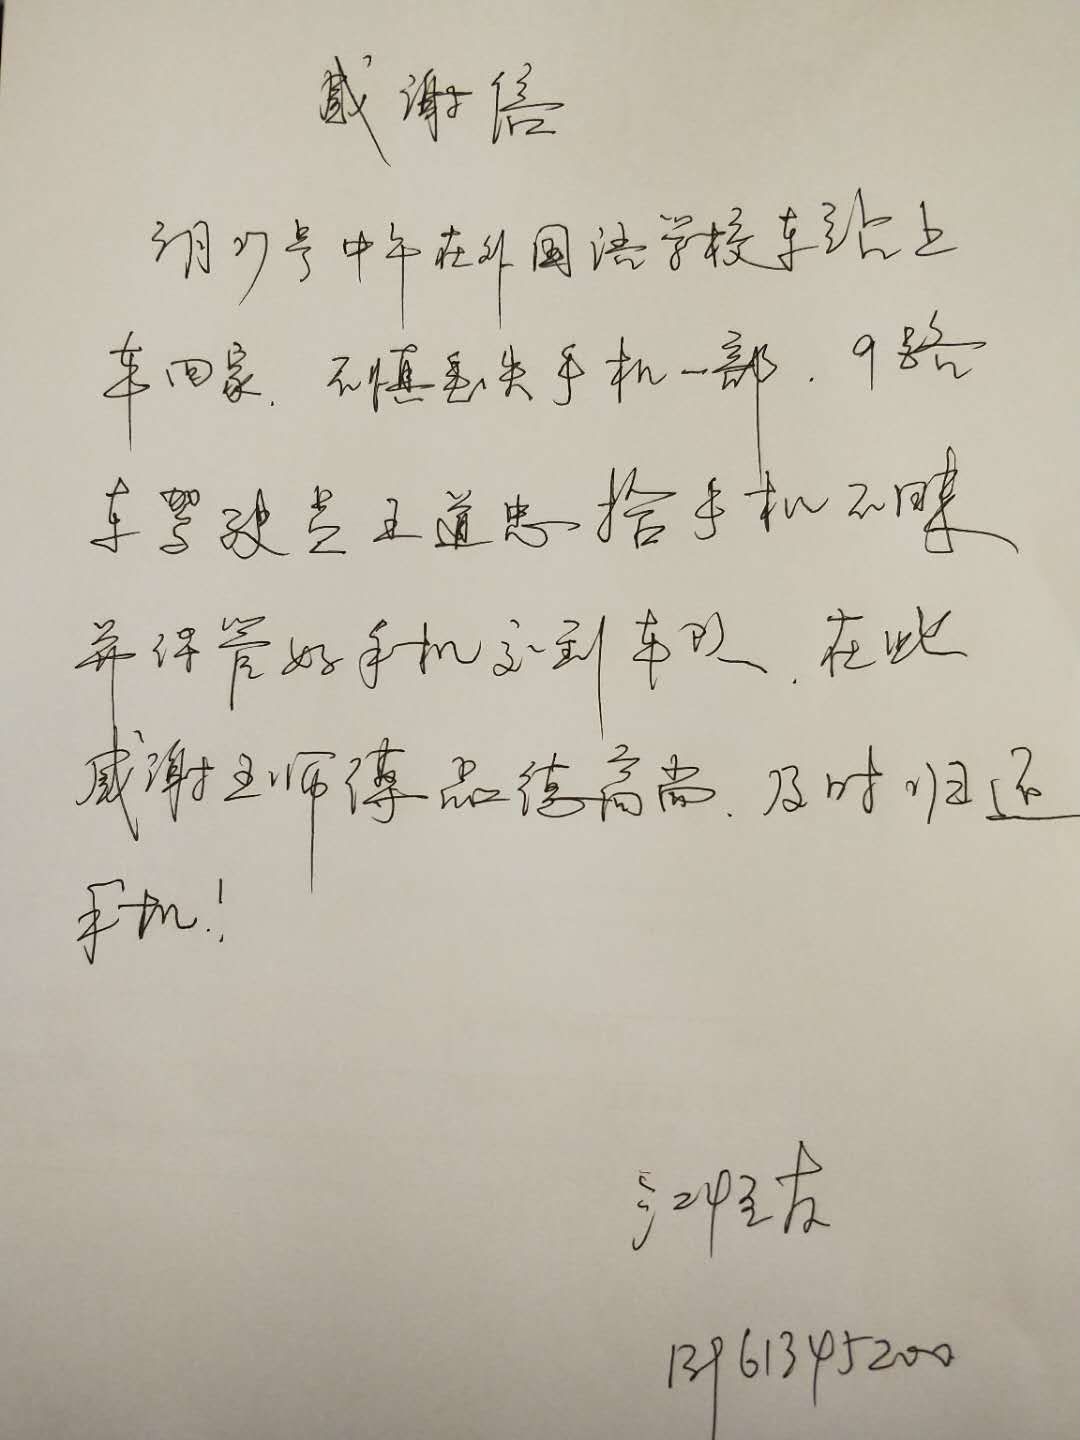 感谢信
月27号中午在外国语学校车站上
车回家.不慎丢失手机一部.9路
车驾驶员王道忠拾手机不昧
并保管好手机交到车队.在此
感谢王师傅品德高尚.及时归还
手机!
13961345200